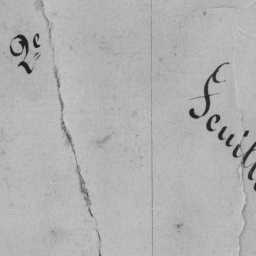 2e
Feuill